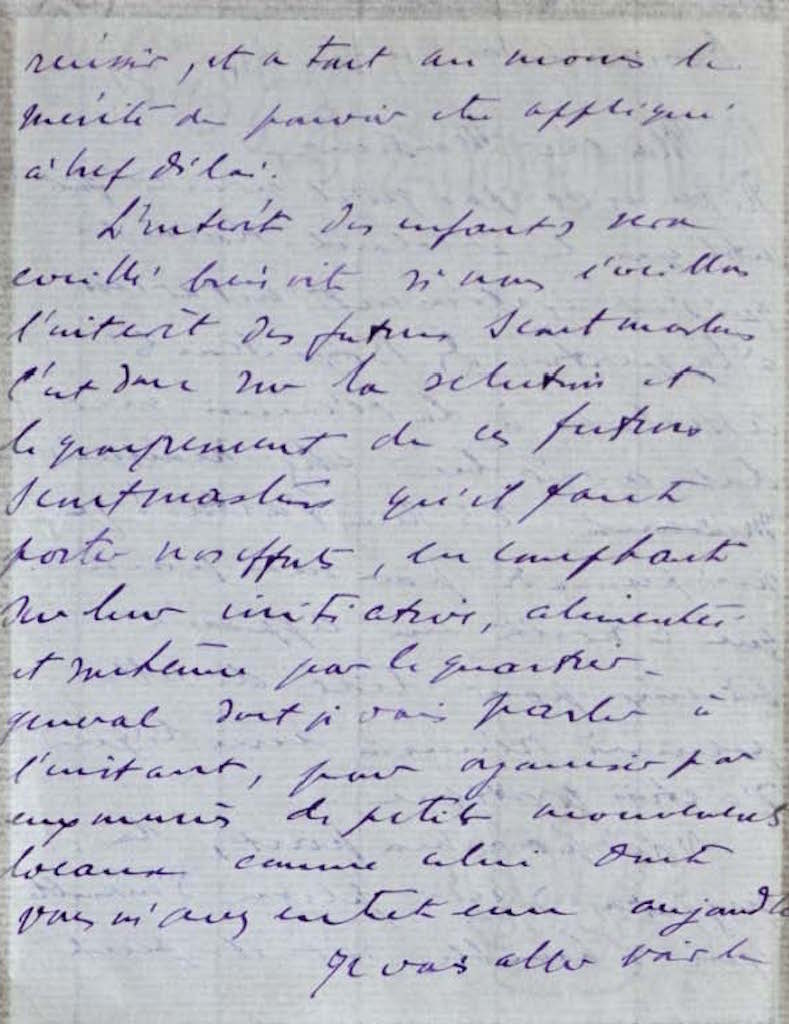 réussir, et a tout au moins le
mérite de pouvoir être appliqué
à bref délai.
L'intérêt des enfants sera
éveillé bien vite si nous éveillons
l'intérêt des futurs Scoutmasters
C'est donc sur la sélection et
le groupement de ces futurs
Scoutmasters qu'il faut
porter nos efforts, en comptant
sur leur initiative, alimentée
et soutenue par le quartier-
général dont je vais parler à
l'instant, pour organiser par
eux mêmes de petits mouvements
locaux comme celui dont
vous m'avez entretenu
Je vais aller voir le